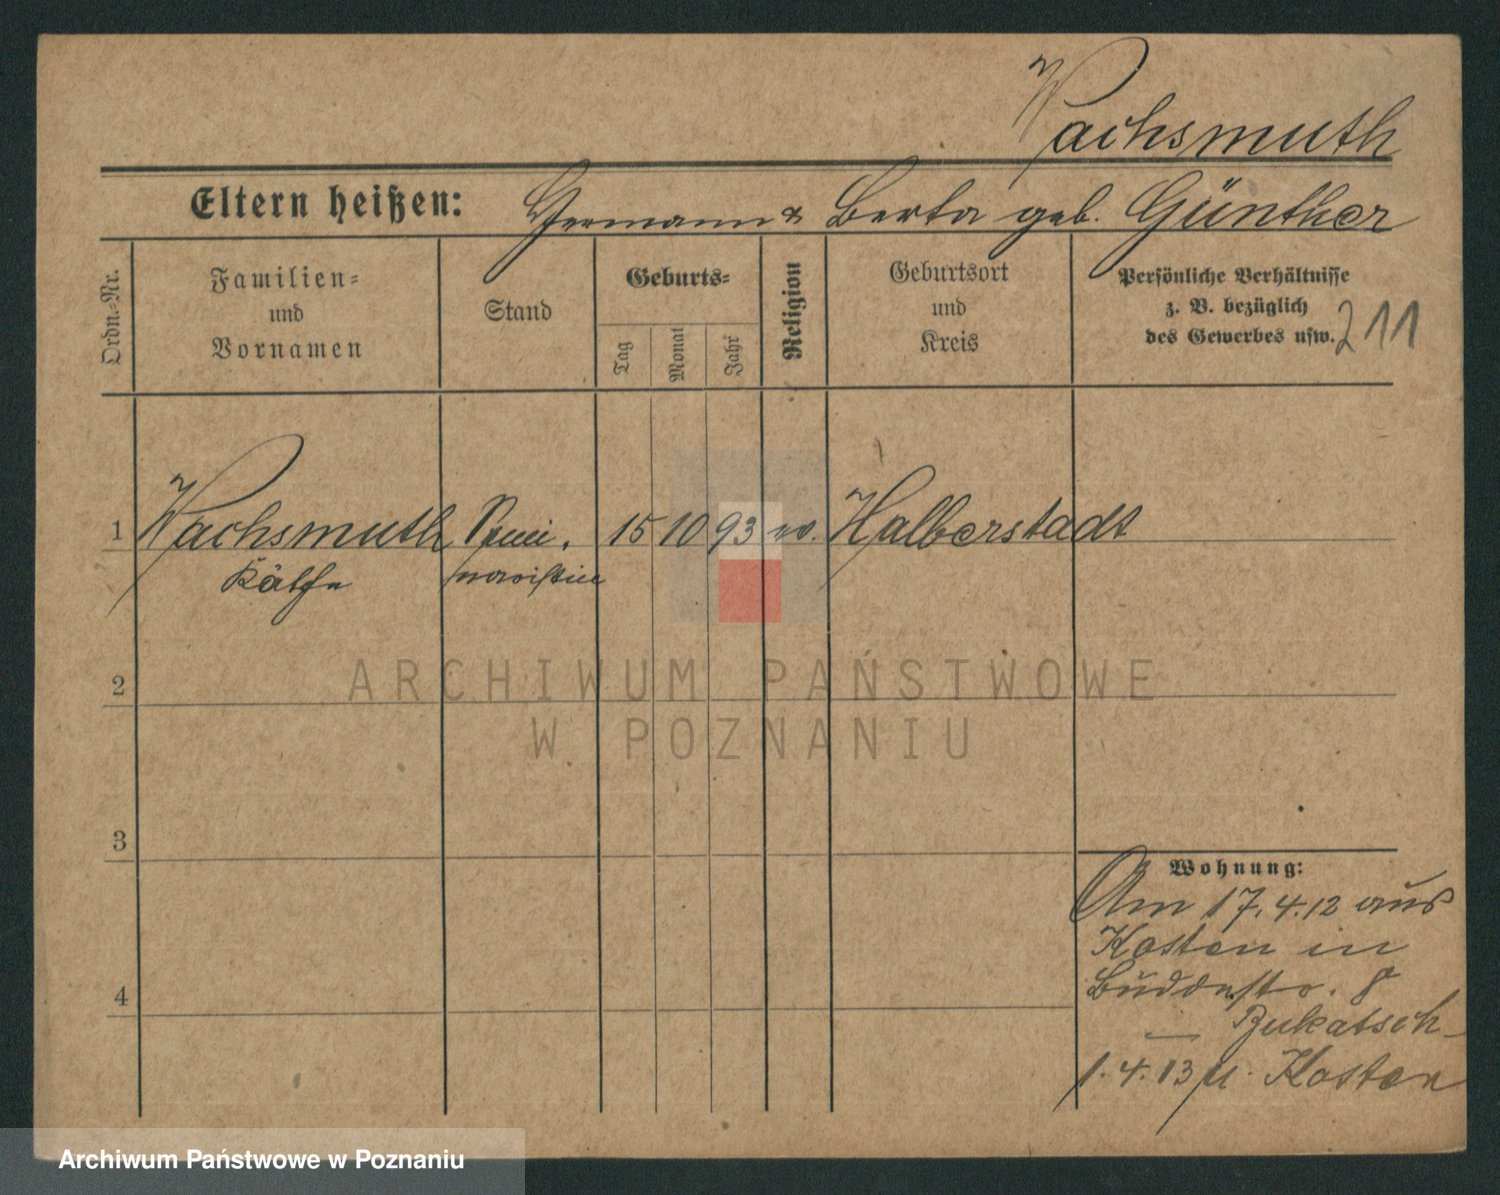 Wachsmuth
Eltern heißen: Hermann & Berta geb. Günther
Ordn.-Nr.
Familien-
und
Vornamen
Stand
Geburts-
Tag
Monat
Jahr
Religion
Geburtsort
und
Kreis
Persönliche Verhältnisse
z. B. bezüglich
des Gewerbes usw.
211
1 Wachsmuth Semi. 15 10 93 ev. Halberstadt
Käthe naristin
2
3
4
Wohnung:
Am 17.4.12 aus
Kosten in
Buddestr. 8
Bukatsch
1.4.13 n. Kosten
ARCHIWUM PAŃSTWOWE
W POZNANIU
Archiwum Państwowe w Poznaniu